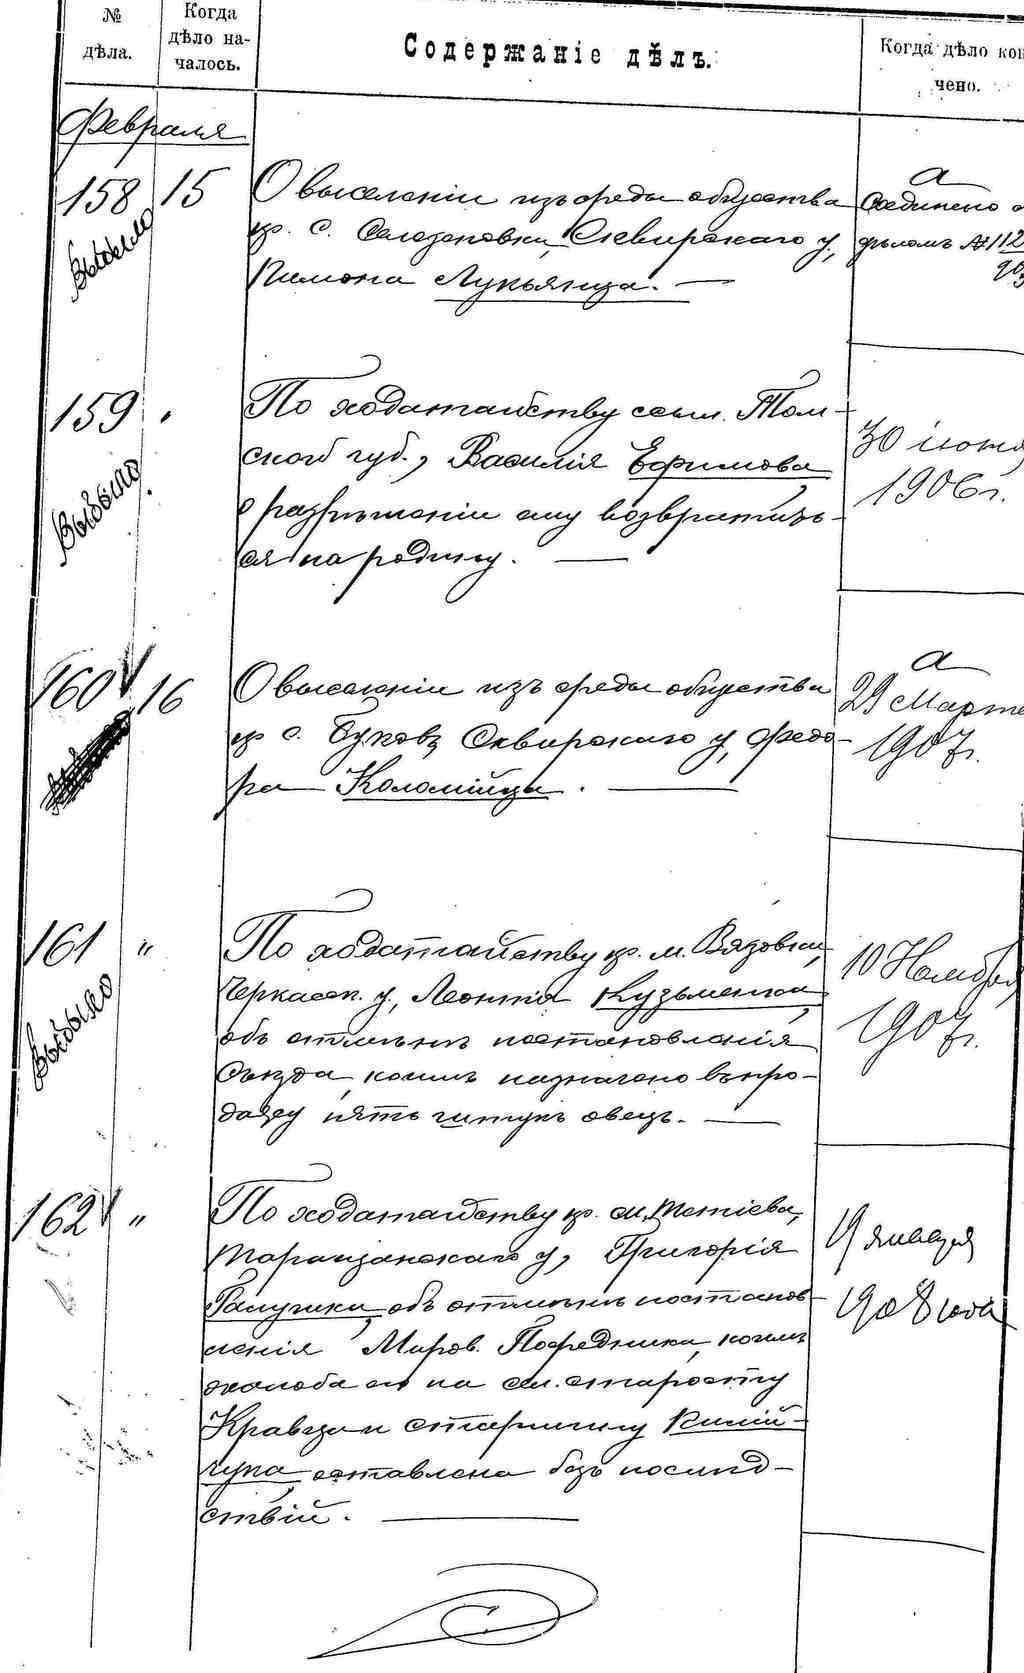 № дѣла.
Когда дѣло началось.
Содержаніе дѣлъ.
Когда дѣло кон
чено.
Февраля
158 15 О выселеніи изъ среды общества
кр. с. Сквирскаго у,
Пимона Лукьянца. —
Выбыло
а
Соединено с
дѣломъ № 112
903
159 " По ходатайству ссыл. Том-
ской губ., Василія Ефимова
о разрѣшеніи ему возвратить-
ся на родину. —
Выбыло.
30 іюня
1906 г.
160 16 О выселеніи изъ среды общества
кр с. Буковъ Сквирскаго у, Федо-
ра Коломійца. —
а
29 Марта
1907 г.
161 " По ходатайству кр. м. Вязовки,
Черкасск. у, Леонтія Кузьменка,
объ отмѣнѣ постановленія
Съѣзда, коимъ назначено въ про-
дажу пять штукъ овецъ. —
Выбыло
10 Ноября
1907 г.
162 " По ходатайству кр. м. Тетіева,
Таращанскаго у, Григорія
Галушки, объ отмѣнѣ постанов-
ленія Миров. Посредника, коимъ
жалоба его на сел. старосту
Кравца и старшину Килій-
чука оставлена безъ послѣд-
ствій. —
9 января
1908 года